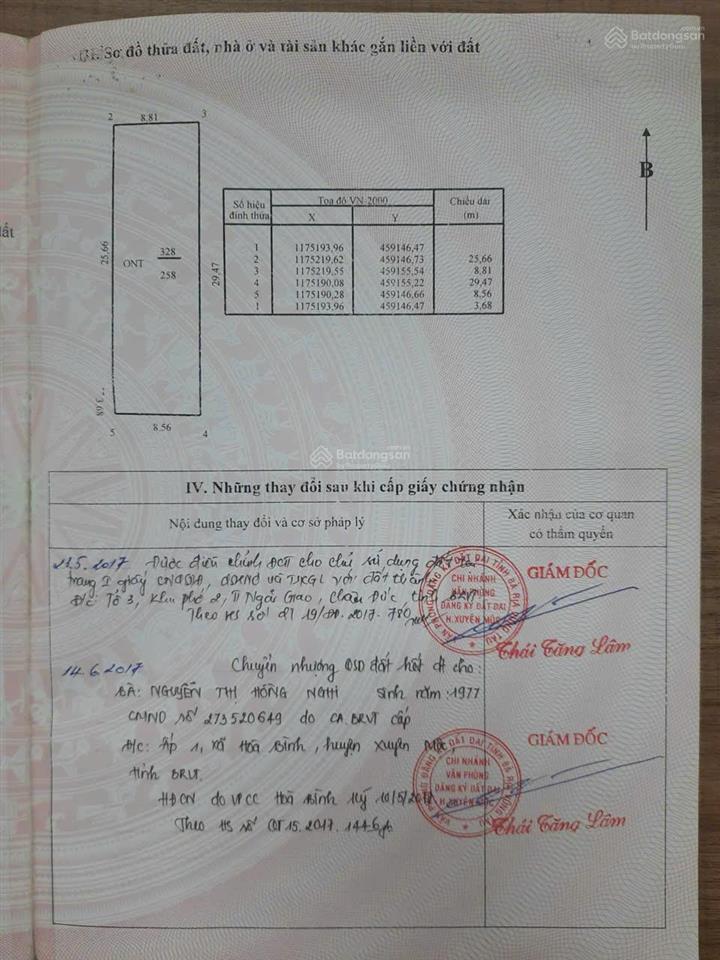 Batdongsan
by PropertyGuru
III. Sơ đồ thửa đất, nhà ở và tài sản khác gắn liền với đất
B
2 8,81 3
25,66
ONT 328
258
29,47
5 8.56 4
Số hiệu đỉnh thửa Toạ độ VN-2000 Chiều dài (m)
X Y
1 1175193,96 459146,47
2 1175219,62 459146,73 25,66
3 1175219,55 459155,54 8,81
4 1175190,08 459155,22 29,47
5 1175190,28 459146,66 8,56
1 1175193,96 459146,47 3,68
đất
Batdongsan
IV. Những thay đổi sau khi cấp giấy chứng nhận
Nội dung thay đổi và cơ sở pháp lý
Xác nhận của cơ quan
có thẩm quyền
5.2017 Được điều chỉnh ĐCTT cho chủ sử dụng đất tại
trang I giấy CNQSDĐ, QSHNO và TSKGL với đất thành
Đ/c: Tổ 3, Khu phố 2, TT Ngãi Giao, Châu Đức, tỉnh BRVT
Theo HS số 19/ .2017. 780
GIÁM ĐỐC
VĂN PHÒNG ĐĂNG KÝ ĐẤT ĐAI TỈNH BÀ RỊA VŨNG TÀU
CHI NHÁNH
VĂN PHÒNG
ĐĂNG KÝ ĐẤT ĐAI
H.XUYÊN MỘC
Thái Tăng Lâm
14.6.2017 Chuyển nhượng QSD đất hết đ cho:
BÀ: NGUYỄN THỊ HỒNG NGHI sinh năm: 1977
CMND số 273520649 do CA.BRVT cấp
Đ/c: Ấp 1, xã Hòa Bình, huyện Xuyên Mộc,
tỉnh BRVT.
HĐCN do VPCC Hoà Bình ký 10/5/2017
Theo HS số CT15.2017.1446
GIÁM ĐỐC
VĂN PHÒNG ĐĂNG KÝ ĐẤT ĐAI TỈNH BÀ RỊA VŨNG TÀU
CHI NHÁNH
VĂN PHÒNG
ĐĂNG KÝ ĐẤT ĐAI
H.XUYÊN MỘC
Thái Tăng Lâm
Batdongsan